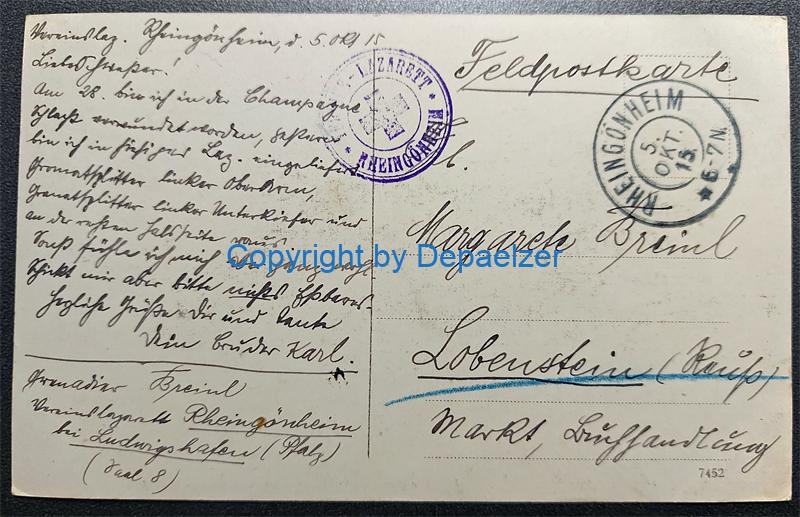 Vereinslaz. Rheingönheim, d. 5. Okt 15
Liebe Schwester!
Am 28. bin ich in der Champagne
Schlacht verwundet worden, gestern
bin ich in hiesiges Laz. eingeliefert
Granatsplitter linker Oberarm,
Granatsplitter linker Unterkiefer und
an der rechten Halsseite raus.
Sonst fühle ich mich aber ganz wohl
Schickt mir aber bitte nichts Eßbares.
Herzliche Grüße Dir und Tante
Dein Bruder Karl.
Grenadier Breinl
Vereinslazarett Rheingönheim
bei Ludwigshafen (Pfalz)
(Saal 8)
LAZARETT * RHEINGÖNHEIM *
Feldpostkarte
RHEINGÖNHEIM
5. OKT. 15
* 6-7N. *
Frl.
Margarete Breinl
Lobenstein (Reuß)
Markt, Buchhandlung
7452
Copyright by Depaelzer